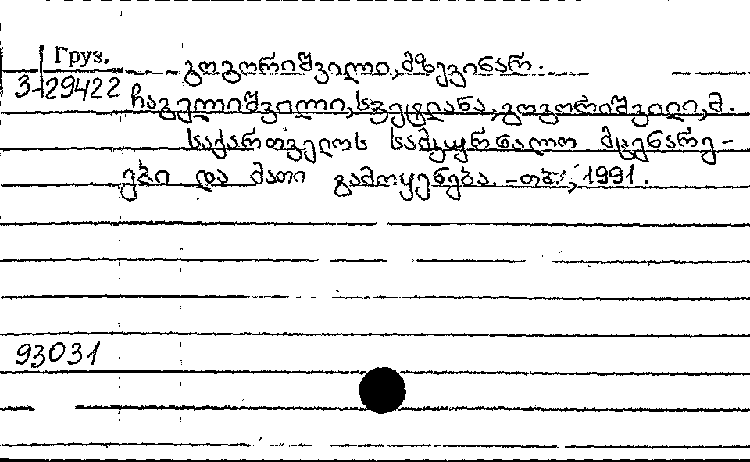 Груз. გოგორიშვილი, მზევინარ.
3-29422 ჩაგელიშვილი, სვეტლანა, გოგორიშვილი, მ.
საქართველოს სამკურნალო მცენარე-
ები და მათი გამოყენება. -თბ., 1991.
93031